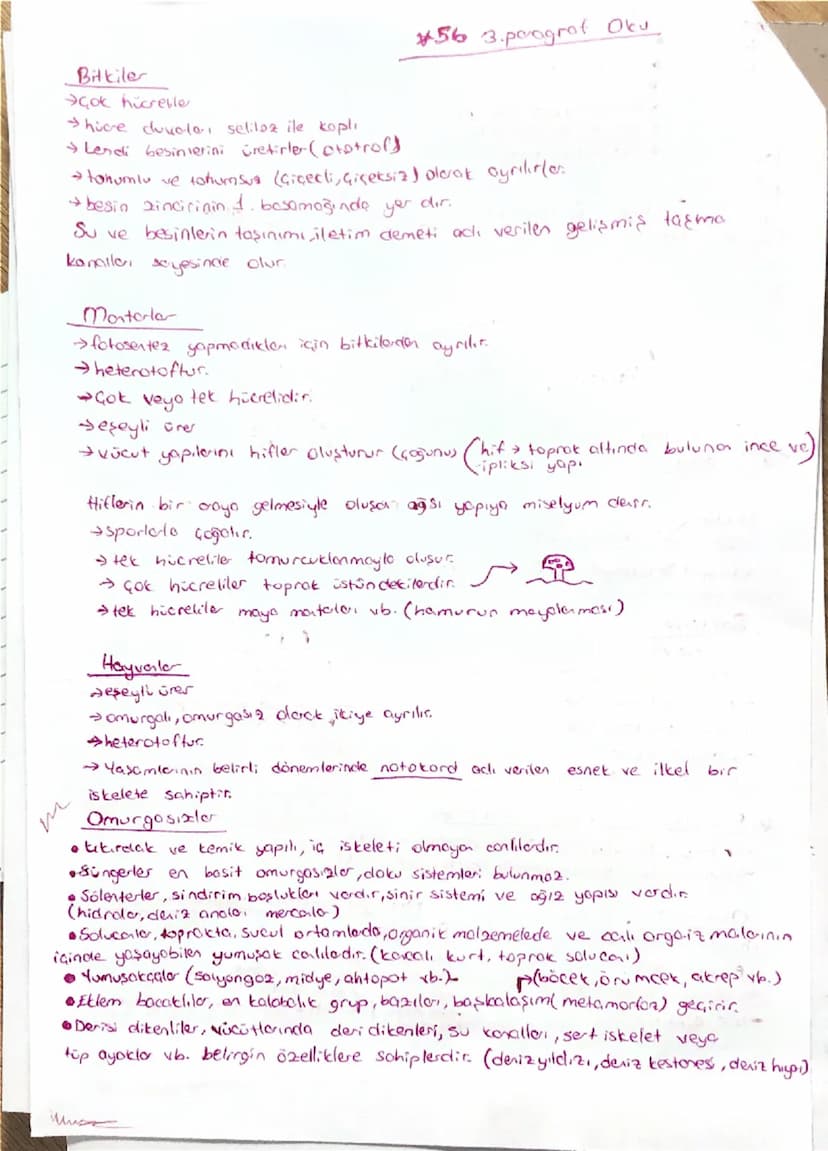 *56 3.paragraf Oku
Bitkiler
→Çok hücreliler
→hücre duvarları seliloz ile kaplı
→ kendi besinlerini üretirler (ototrof)
→tohumlu ve tohumsuz (Çiçekli, Çiçeksiz) olarak ayrılırlar.
→besin zincirinin 1. basamağında yer alır.
Su ve besinlerin taşınımı, iletim demeti adı verilen gelişmiş taşıma
kanalları sayesinde olur.
Mantarlar
→fotosentez yapmadıkları için bitkilerden ayrılır.
→heterotoftur.
→Çok veya tek hücrelidir.
→eşeyli ürer
→vücut yapılarını hifler oluşturur (çoğunu) (hif → toprak altında bulunan ince ve
ipliksi yapı)
Hiflerin bir araya gelmesiyle oluşan ağsı yapıya miselyum denir.
→sporlarla çoğalır.
→ tek hücreliler tomurcuklanmayla oluşur.
→ çok hücreliler toprak üstündekilerdir.
→tek hücreliler maya mantarları vb. (hamurun mayalanması)
Hayvanlar
→eşeyli ürer
→omurgalı, omurgasız olarak ikiye ayrılır.
→heterotoftur.
→ Yaşamlarının belirli dönemlerinde notokord adı verilen esnek ve ilkel bir
iskelete sahiptir.
Omurgasızlar
• kıkırdak ve kemik yapılı, iç iskeleti olmayan canlılardır.
• Süngerler en basit omurgasızlar, doku sistemleri bulunmaz.
• Sölenterler, sindirim boşlukları vardır, sinir sistemi ve ağız yapısı vardır.
(hidralar, deniz anaları mercanlar)
• Solucanlar, toprakta, sucul ortamlarda, organik malzemelerde ve canlı organizmalarının
içinde yaşayabilen yumuşak canlılardır. (kancalı kurt, toprak solucanı)
• Yumuşakçalar (salyongoz, midye, ahtopot vb.) (böcek, örümcek, akrep vb.)
• Eklem bacaklılar, en kalabalık grup, bazıları, başkalaşım (metamorfoz) geçirir.
• Derisi dikenliler, vücutlarında deri dikenleri, su kanalları, sert iskelet veya
tüp ayaklar vb. belirgin özelliklere sahiplerdir. (deniz yıldızı, deniz kestanesi, deniz hıyarı)